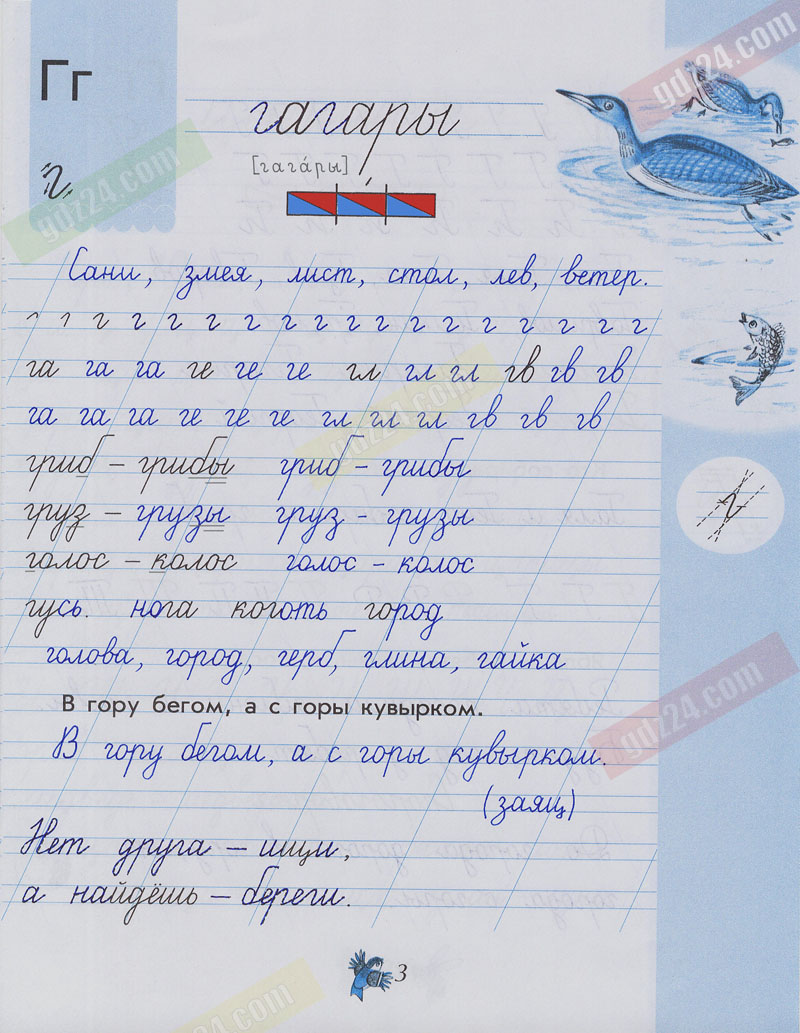 Гг
гагары
г
[гага́ры]
Сани, змея, лист, стол, лев, ветер.
г г г г г г г г г г г г г г г
га га га ге ге ге гл гл гл гв гв гв
га га га ге ге ге гл гл гл гв гв гв
гриб – грибы гриб – грибы
груз – грузы груз – грузы
г
голос – колос голос – колос
гусь. нога коготь город
голова, город, герб, глина, гайка
В гору бегом, а с горы кувырком.
В гору бегом, а с горы кувырком.
(заящ)
Нет друга – ищи,
а найдёшь – береги.
3
gdz24.com
gdz24.com
gdz24.com
gdz24.com
gdz24.com